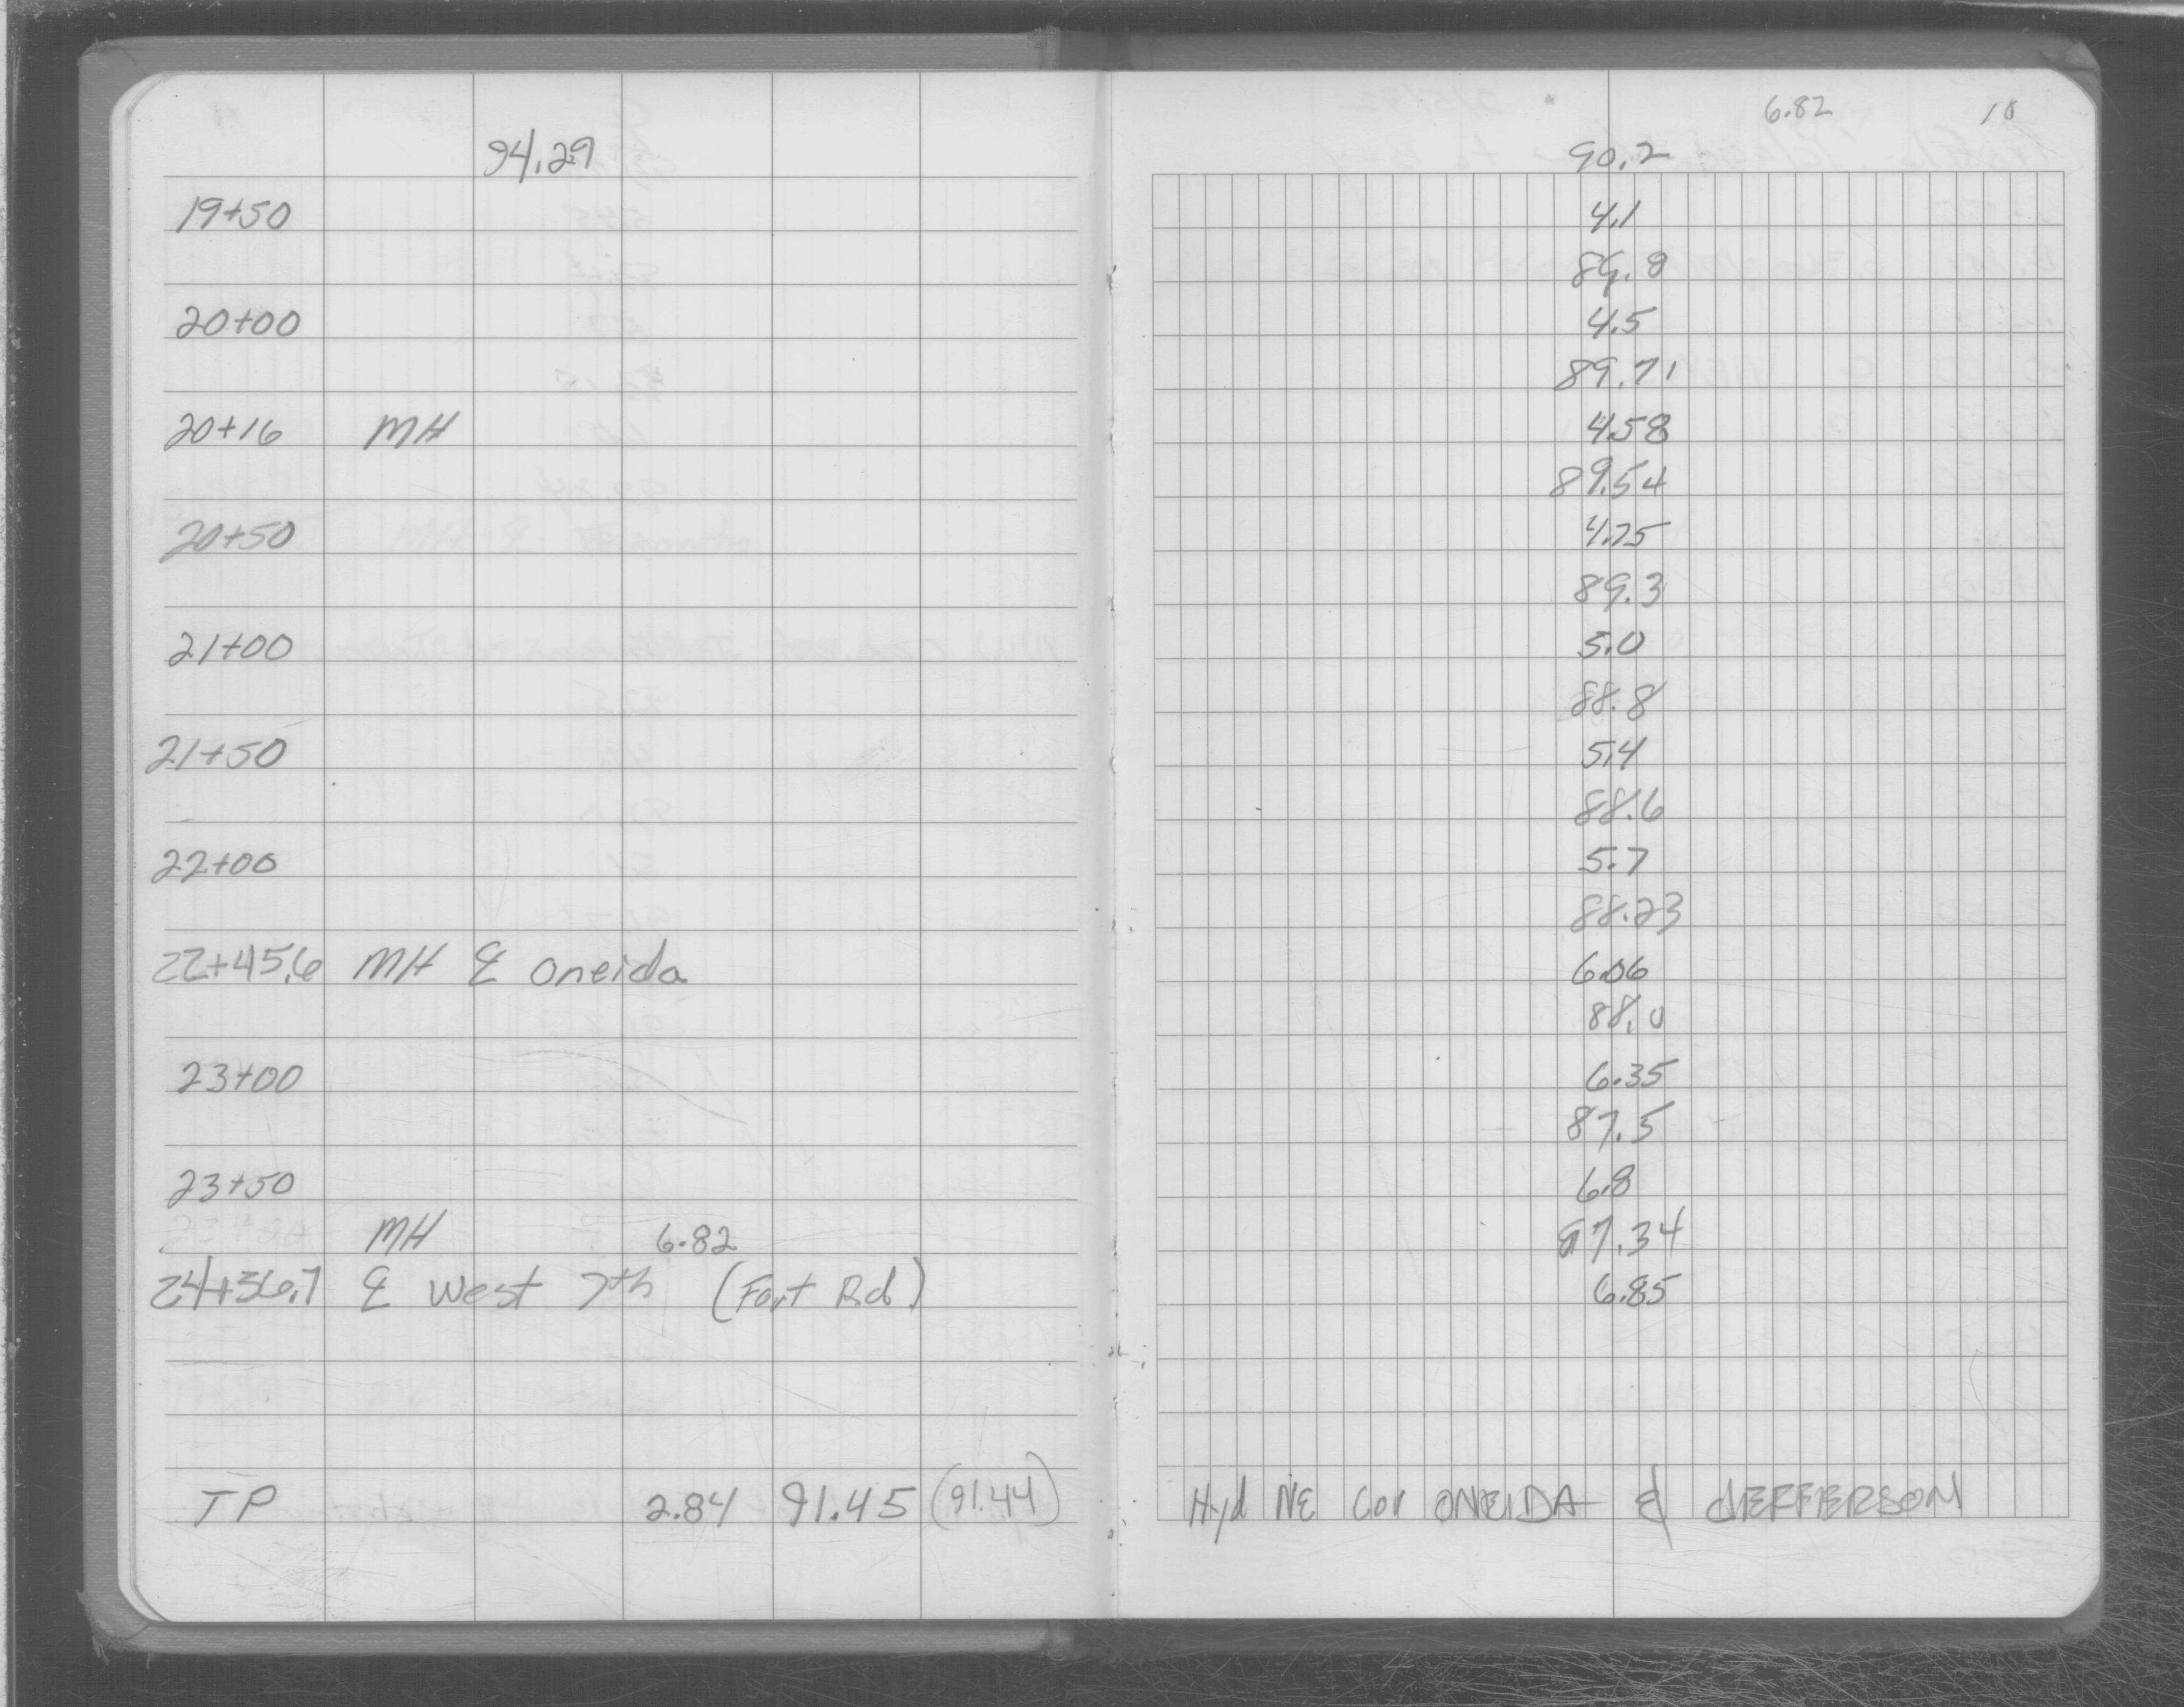 94.29
19+50
20+00
20+16 MH
20+50
21+00
21+50
22+00
22+45.6 MH ℄ Oneida
23+00
23+50
MH 6.82
24+36.7 ℄ West 7th (Fort Rd)
TP 2.84 91.45 (91.44)
6.82 18
90.2
4.1
89.8
4.5
89.71
4.58
89.54
4.75
89.3
5.0
88.8
5.4
88.6
5.7
88.23
6.06
88.0
6.35
87.5
6.8
87.34
6.85
Hyd NE Cor ONEIDA & JEFFERSON